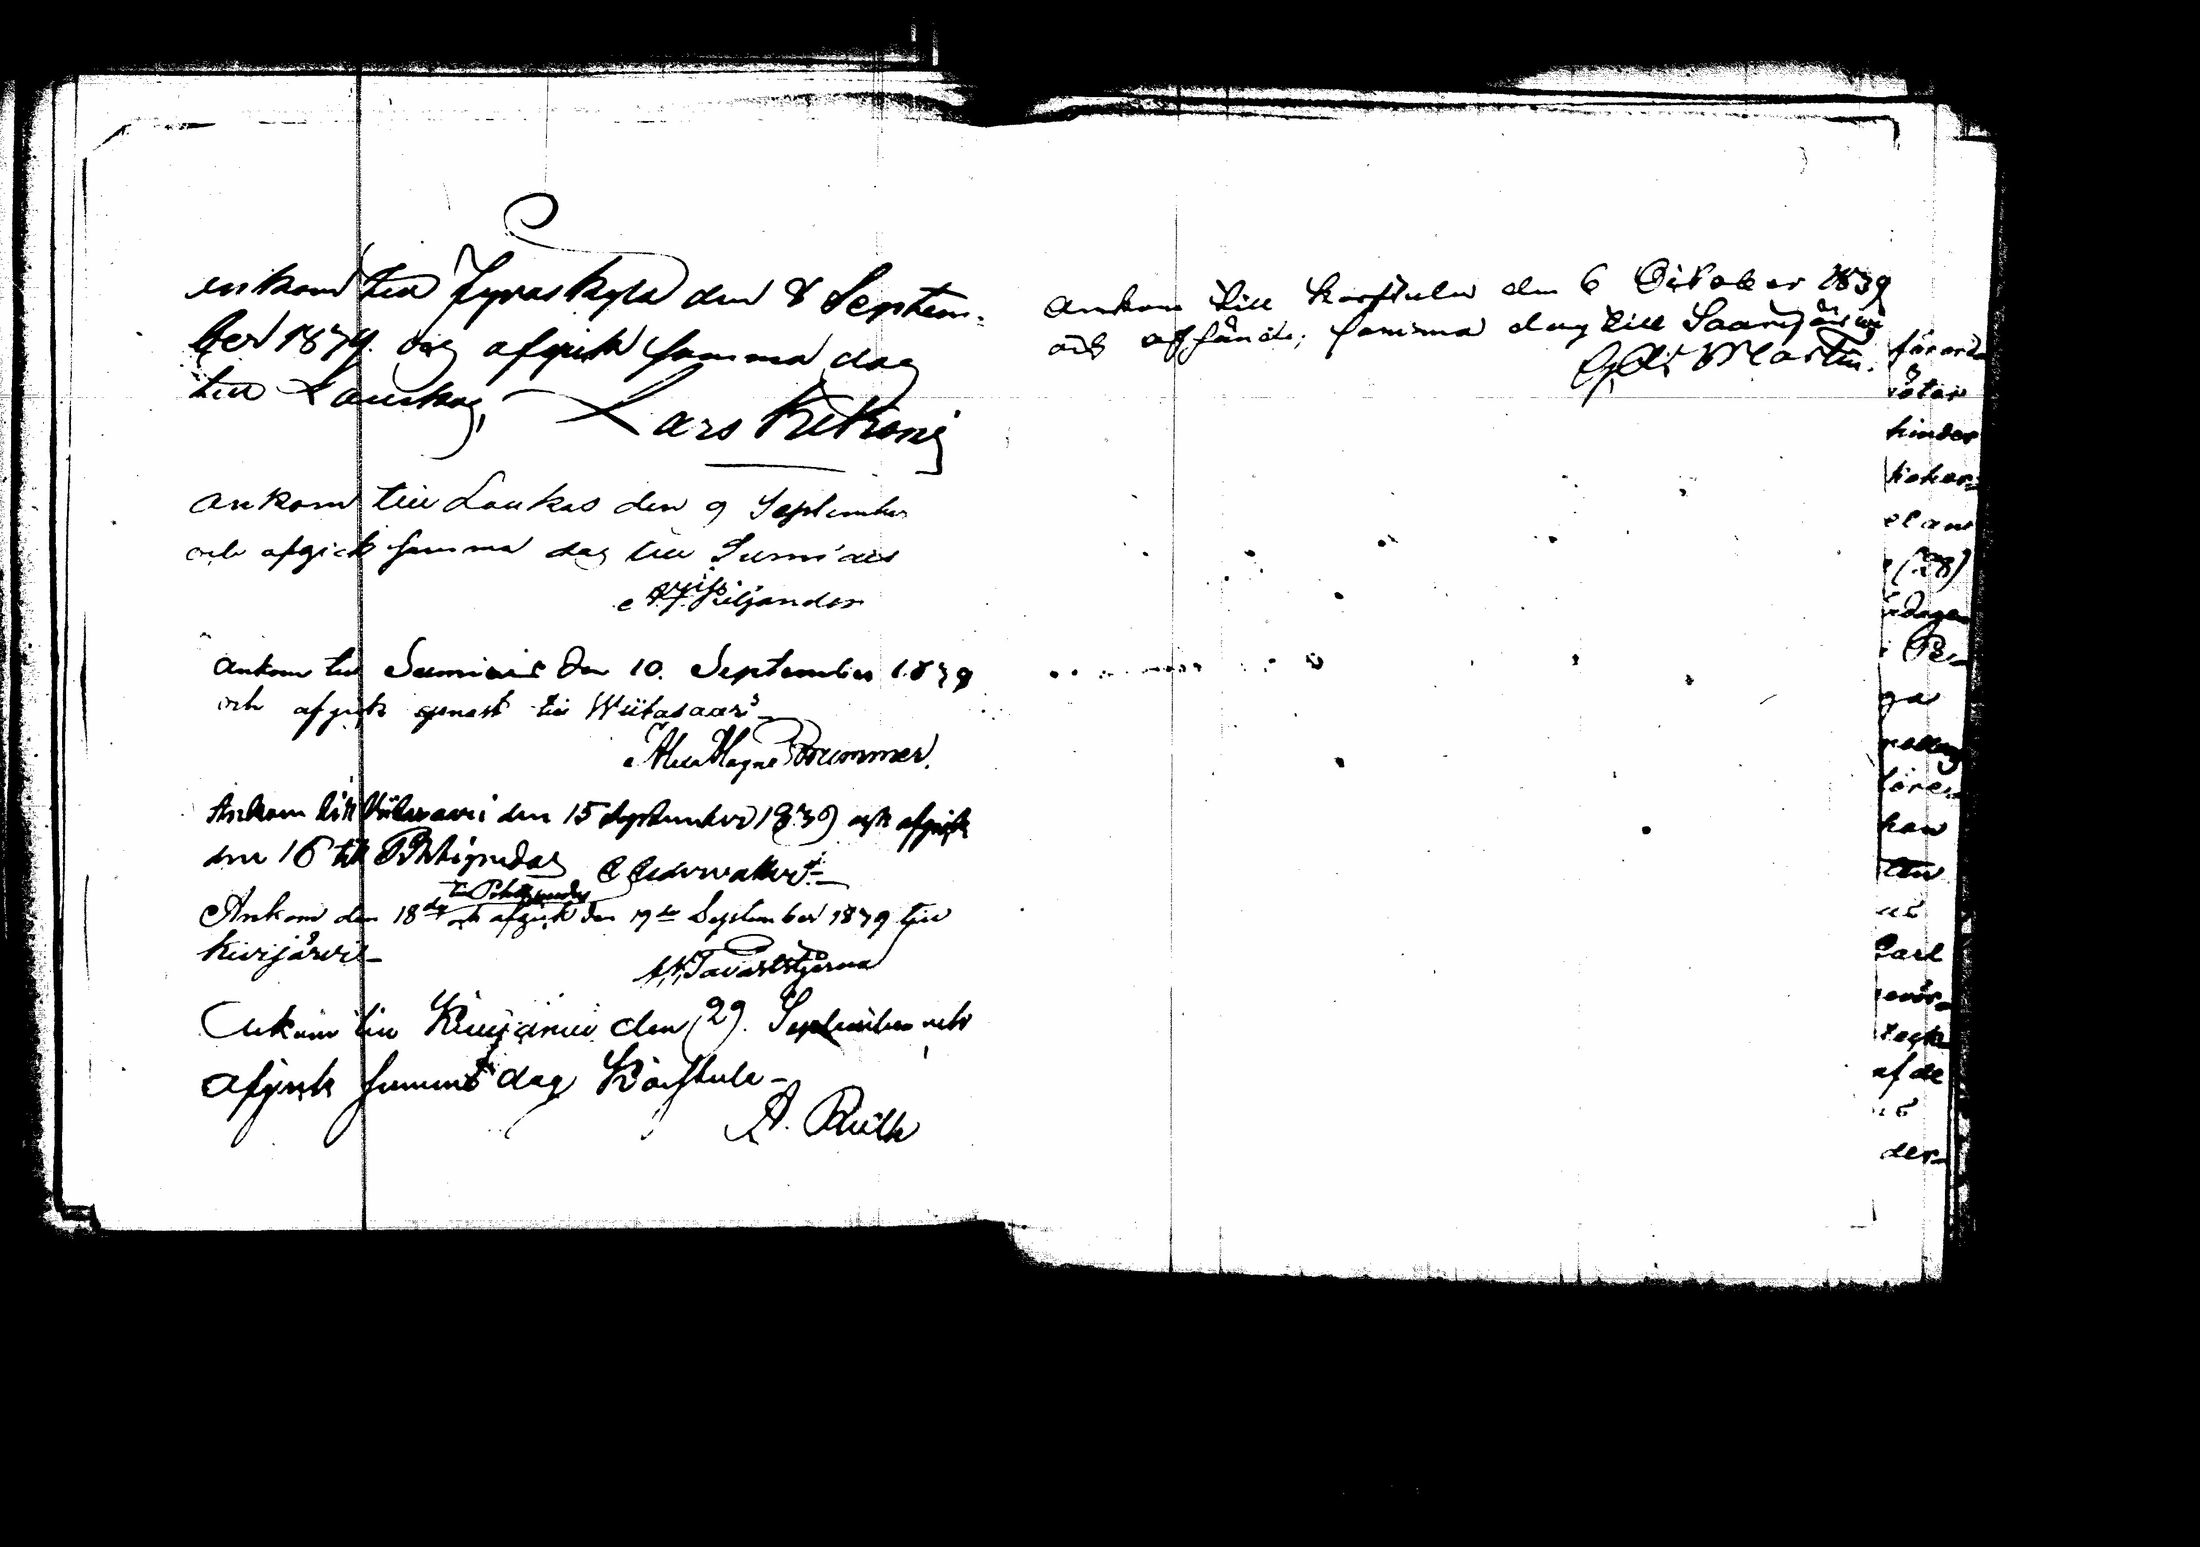 ankom till Jyväskylä den 8 Septem-
ber 1879 och afgick samma dag
till Laukas, Lars Kekoni
ankom till Laukas den 9 September
och afgick samma dag till Sumiais
Siljander
ankom till Sumiais den 10. September 1879
och afgick genast till Wiitasaari
Alex Magne Brummer.
Ankom till Viitasaari den 15 September 1879 och afgick
den 16 till Pihtipudas C Cederwaller
till Pihtipudas
Ankom den 18de och afgick den 19de September 1879 till
Kivijärvi
Tavaststjerna
Ankom till Kivijärvi den 29. September och
afgick samma dag Karstula
A. Ruth
Ankom till Karstula den 6 October 1879
och afsändes samma dag till Saarijärvi
Martin.
hinder
(28)
ga
kan
Carl
af de
der-